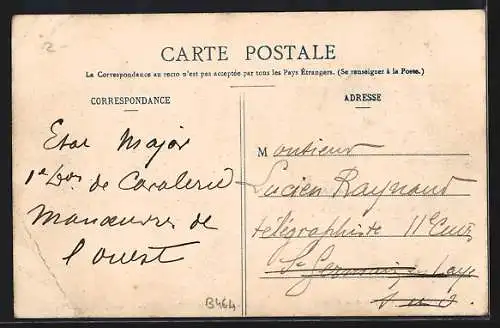 2-
CARTE POSTALE
La Correspondance au recto n'est pas acceptée par tous les Pays Étrangers. (Se renseigner à la Poste.)
CORRESPONDANCE
ADRESSE
Etat Major
1e Don de Cavalerie
Manœuvres de
l'ouest
Monsieur
Lucien Raynaud
télégraphiste 11e Cuirs
St Germain-Laye
B464